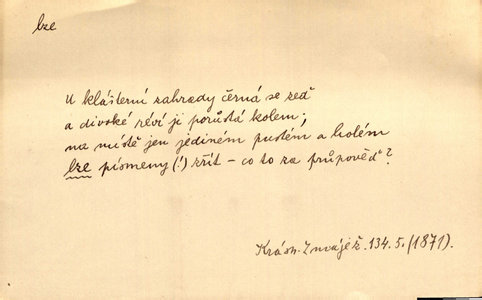 lze
U klášterní zahrady černá se zeď
a divské réví ji porůstá kolem;
na místě jen jediném pustém a holém
lze písmeny (!) zřít – co to za průpověď?
Krásn. Z mváj ž. 134. 5. (1871).